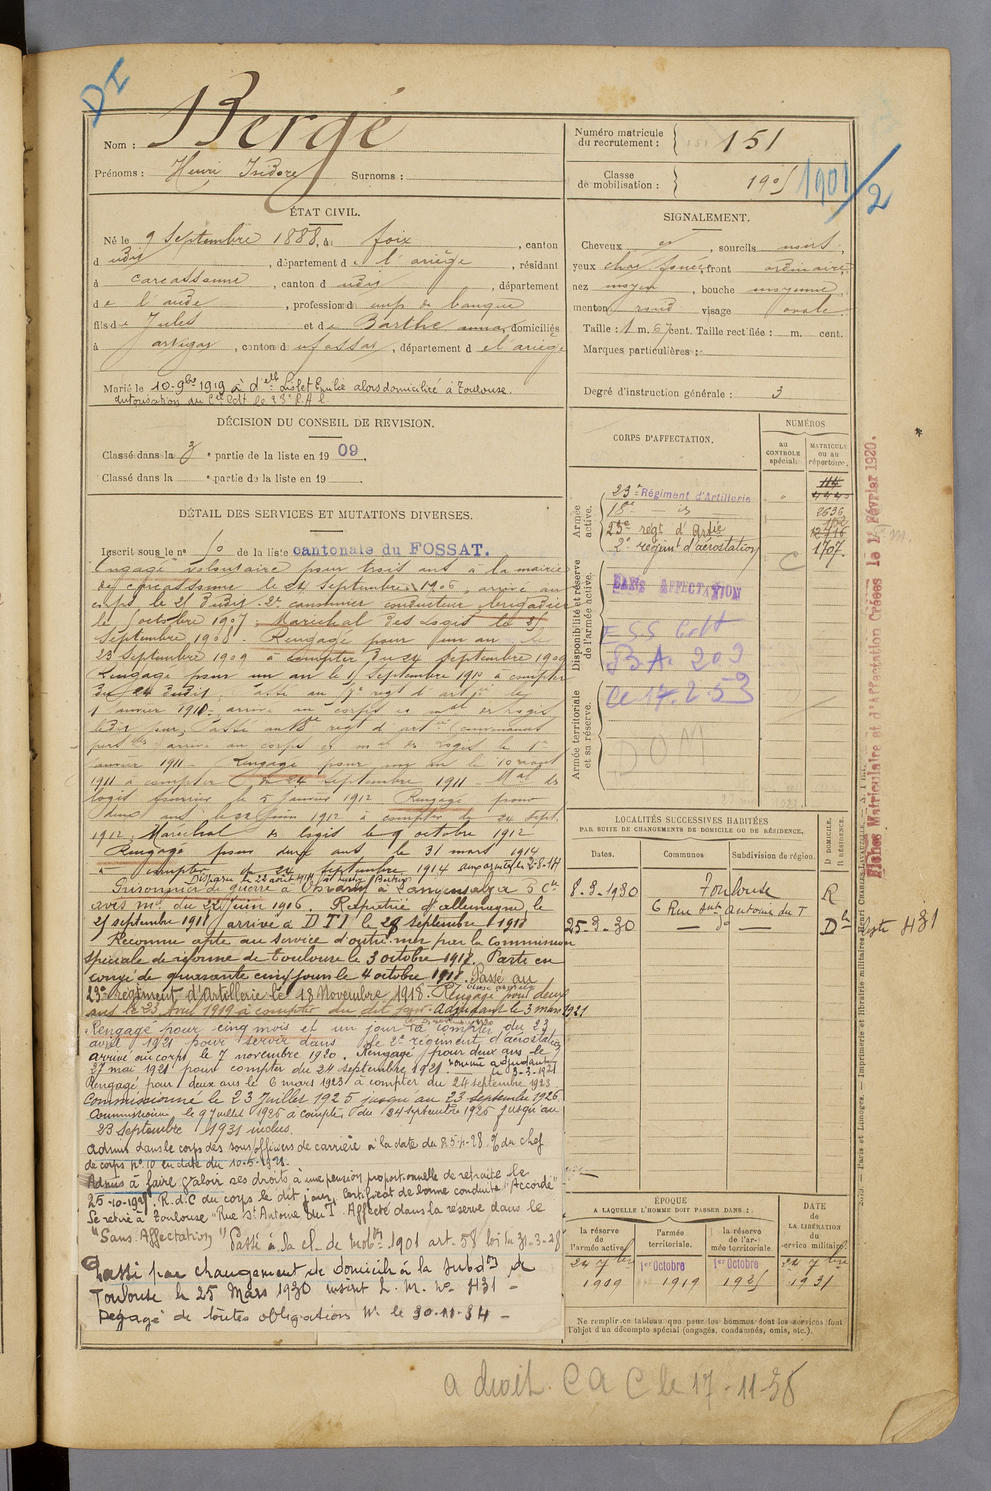 DI
Nom : Bergé
Prénoms : Henri Isidore Surnoms :
Numéro matricule du recrutement : 151
Classe de mobilisation : 1905 1901/2
ÉTAT CIVIL.
Né le 9 Septembre 1888, à foix, canton
d udis, département de l'ariège, résidant
à carcassonne, canton d udis, département
de l'aude, profession d emp de banque
fils de Jules et de Barthe anna, domiciliés
à artigat, canton du fossat, département de l'ariège
Marié le 10-9bre 1919 à d'elle Emilie alors domiciliée à Toulouse.
autorisation du Lt Colt Cdt le 23e R.A.C.
DÉCISION DU CONSEIL DE REVISION.
Classé dans la 3e partie de la liste en 1909.
Classé dans la e partie de la liste en 19 .
DÉTAIL DES SERVICES ET MUTATIONS DIVERSES.
Inscrit sous le no 10 de la liste cantonale du FOSSAT.
Engagé volontaire pour trois ans à la mairie
de carcassonne le 24 septembre 1906, arrivé au
corps le 25 dudit. 2e canonnier conducteur, brigadier
le 1 octobre 1907. Maréchal des logis le 25
septembre 1908. Rengagé pour un an le
23 septembre 1909 à compter du 24 septembre 1909
Rengagé pour un an le 1 septembre 1910 à compter
du 24 dudit. Passé au regt d'artie le
1 janvier 1910 arrivé au corps et mal des logis
le dit jour, Passé au 18e regt d'art
arrivé au corps et mal des logis le 1er
janvier 1911. Rengagé pour un an le 10 
1911 à compter du 24 septembre 1911. Mal des
logis fourrier le 5 janvier 1912. Rengagé pour
deux ans le 22 juin 1912 à compter du 24 sept.
1912. Maréchal des logis le 9 octobre 1912
Rengagé pour deux ans le 31 mars 1914
à compter du 24 septembre 1914 aux armées le 2-8-14
Disparu le 22 août 1914
Prisonnier de guerre à à Langensalza 5 Cie
avis ml. du 22 juin 1916. Rapatrié d'allemagne le
25 septembre 1918, arrivé à D T I le 28 septembre 1918
Reconnu apte au service d'outre mer par la commission
spéciale de réforme de toulouse le 3 octobre 1918. Parti en
congé de quarante cinq jours le 4 octobre 1918. Passé au
23e régiment d'Artillerie le 18 Novembre 1918. Rengagé pour deux
ans le 23 1919 à compter du dit jour. Adjudant le 3 mars 1921
Rengagé pour cinq mois et un jour à compter du 23
avril 1921 pour servir dans le 2e régiment d'aérostation
arrivé au corps le 7 novembre 1920. Rengagé pour deux ans le
27 mai 1921 pour compter du 24 septembre 1921. nommé adjudant le 3-3-1921
Rengagé pour deux ans le 6 mars 1923 à compter du 24 septembre 1923
Commissionné le 23 Juillet 1925 jusqu'au 23 septembre 1926.
Commissionné le 9 Juillet 1926 à compter du 24 septembre 1926 jusqu'au
23 Septembre 1931 inclus.
Admis dans le corps des sous officiers de carrière à la date du 25-4-28. % du chef
de corps no 10 en date du 10-5-1928.
Admis à faire valoir ses droits à une pension proportionnelle de retraite le
25-10-1929. R.d.C du corps le dit jour, Certificat de bonne conduite "Accordé"
Se retire à Toulouse "Rue St Antoine du T". Affecté dans la réserve dans le
"Sans Affectation" Passé à la cl. de mobon 1901 art. 58 loi du 31-3-28
Passé par changement de domicile à la subdon de
Toulouse le 25 Mars 1930 inscrit L. M. no 431 -
Dégagé de toutes obligations Mres le 30-11-34 -
SIGNALEMENT.
Cheveux , sourcils noirs,
yeux , front ordinaire,
nez moyen, bouche moyenne,
menton rond visage ovale.
Taille : 1 m. 67 cent. Taille rectifiée : m. cent.
Marques particulières :
Degré d'instruction générale : 3
CORPS D'AFFECTATION.
NUMÉROS
au CONTRÔLE spécial.
MATRICULE ou au répertoire.
Armée active.
23e Régiment d'Artillerie
18e — id
2636
23e regt d'Artie
2e regiment d'aérostation 1707
Disponibilité et réserve de l'armée active.
SANS AFFECTATION
B.A. 203
Ce 17.2.53
Armée territoriale et sa réserve.
DOM
LOCALITÉS SUCCESSIVES HABITÉES
PAR SUITE DE CHANGEMENTS DE DOMICILE OU DE RÉSIDENCE.
Dates. Communes Subdivision de région. D DOMICILE. R RÉSIDENCE.
8-3-1930 Toulouse R
6 Rue St Antoine du T
25-3-30 — do — Dle liste 431
ÉPOQUE
A LAQUELLE L'HOMME DOIT PASSER DANS :
DATE de LA LIBÉRATION du service militaire.
la réserve de l'armée active. l'armée territoriale. la réserve de l'armée territoriale.
24 7bre 1er Octobre 1er Octobre 24 7bre
1909 1919 1925 1931
Ne remplir ce tableau que pour les hommes dont les services font
l'objet d'un décompte spécial (engagés, condamnés, omis, etc.).
Fiches Matriculaire et d'Affectation Créées le 1 Février 1920.
Paris et Limoges. — Imprimerie et librairie militaires Henri CHARLES-LAVAUZELLE.
a droit. C A C le 17-11-38